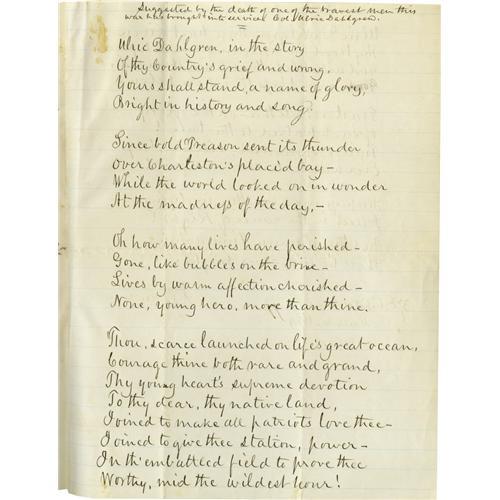 Suggested by the death of one of the bravest men this
war has brought into service. Col. Ulric Dahlgren.
Ulric Dahlgren, in the story
Of thy Country's grief and wrong,
Yours shall stand, a name of glory,
Bright in history and song.
Since bold Treason sent its thunder
Over Charleston's placid bay –
While the world looked on in wonder
At the madness of the day, –
Oh how many lives have perished –
Gone, like bubbles on the brine –
Lives by warm affection cherished –
None, young hero, more than thine.
Thou, scarce launched on life's great ocean,
Courage thine both rare and grand,
Thy young heart's supreme devotion
To thy dear, thy native land,
Joined to make all patriots love thee –
Joined to give thee station, power –
In th' embattled field to prove thee
Worthy, mid the wildest hour!